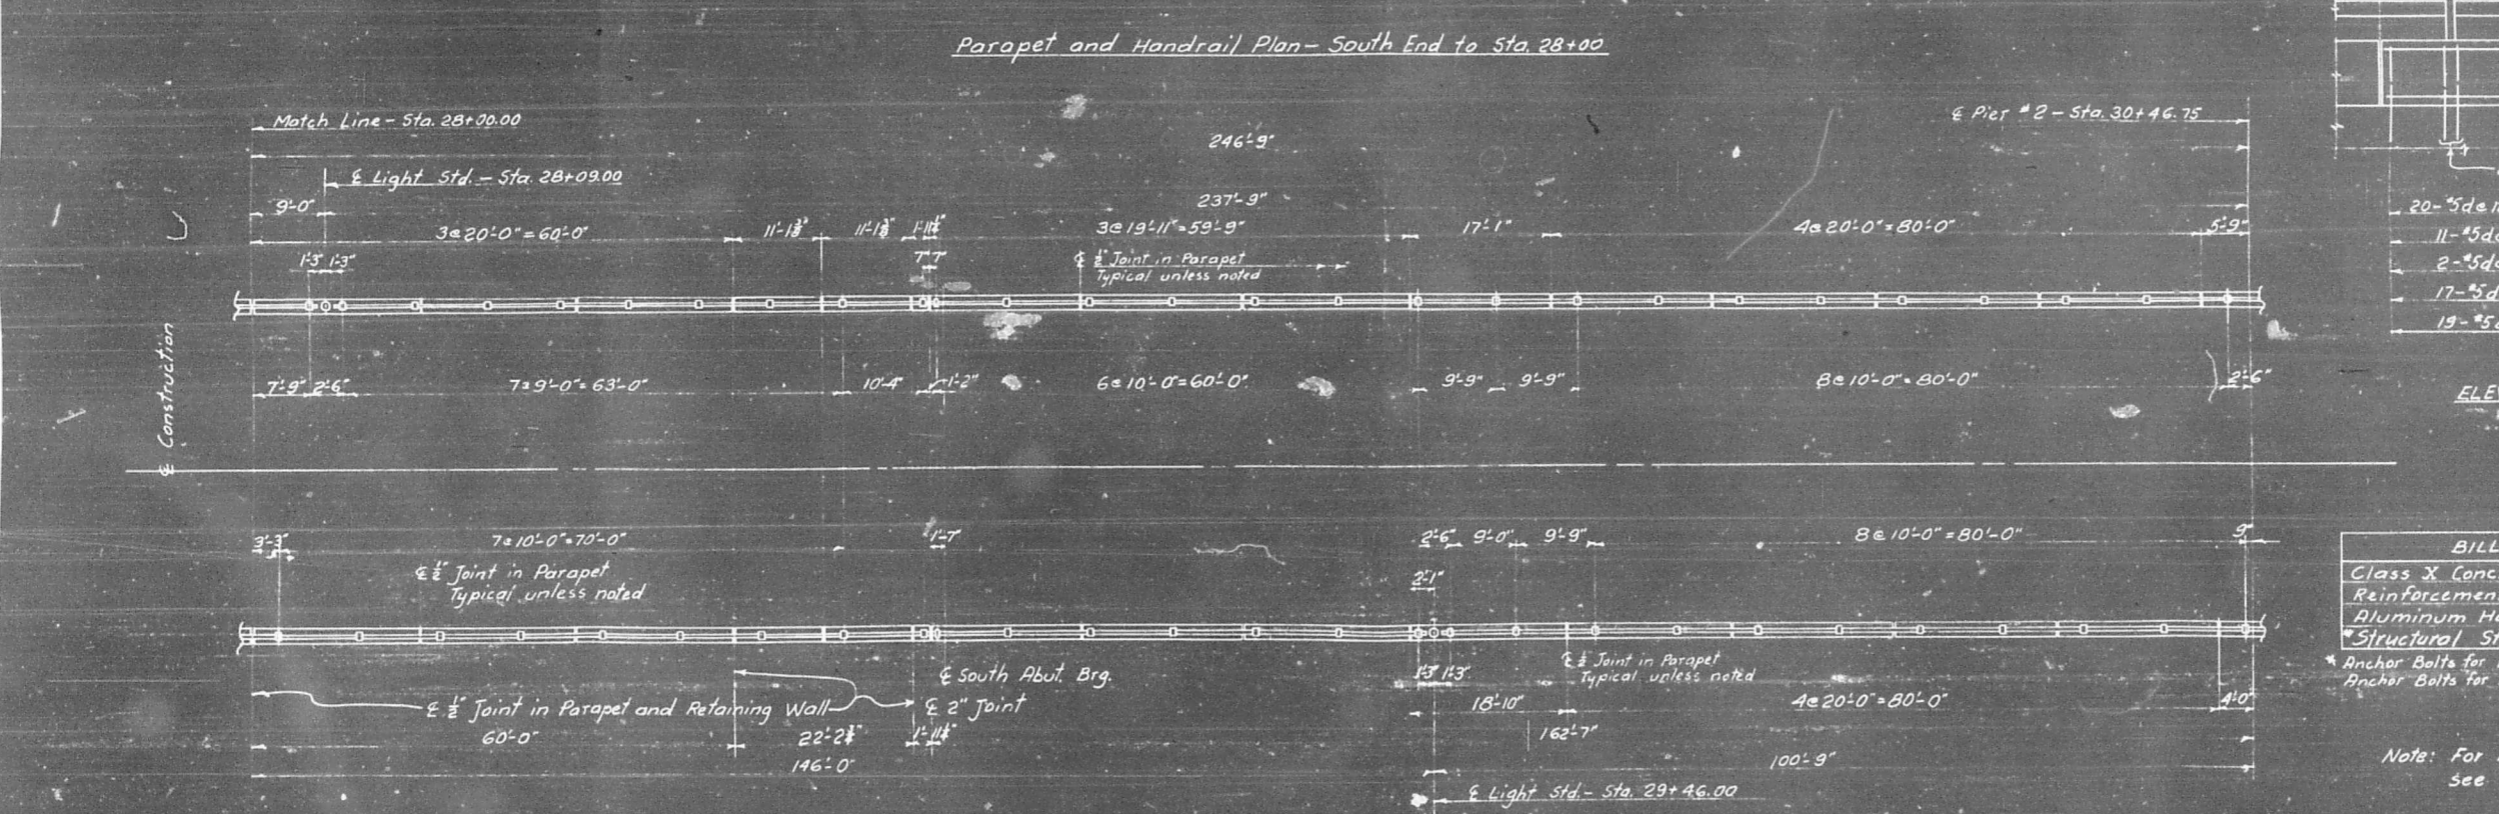 Parapet and Handrail Plan - South End to Sta. 28+00
Match Line - Sta. 28+00.00
℄ Pier #2 - Sta. 30+46.75
246'-9"
℄ Light Std. - Sta. 28+09.00
237'-9"
9'-0"
3@20'-0"=60'-0"
11'-1⅜"
11'-1⅜"
3@19'-11"=59'-9"
17'-1"
4@20'-0"=80'-0"
5'-9"
1'-3" 1'-3"
7" 7"
℄ ½" Joint in Parapet
Typical unless noted
℄ Construction
7'-9" 2'-6"
7@9'-0"=63'-0"
10'-4"
1'-2"
6@10'-0"=60'-0"
9'-9"
9'-9"
8@10'-0"=80'-0"
2'-6"
3'-3"
7@10'-0"=70'-0"
1'-7"
2'-6"
9'-0"
9'-9"
8@10'-0"=80'-0"
9"
2'-1"
℄ ½" Joint in Parapet
Typical unless noted
℄ South Abut. Brg.
1'-3" 1'-3"
℄ ½" Joint in Parapet
Typical unless noted
℄ ½" Joint in Parapet and Retaining Wall
℄ 2" Joint
18'-10"
4@20'-0"=80'-0"
4'-0"
60'-0"
162'-7"
146'-0"
100'-9"
℄ Light Std. - Sta. 29+46.00
20-#5d@1
11-#5d
2-#5d
17-#5d
19-#5
ELE
BILL
Class X Conc
Reinforcemen
Aluminum Ha
*Structural St
* Anchor Bolts for
Anchor Bolts for
Note: For
see